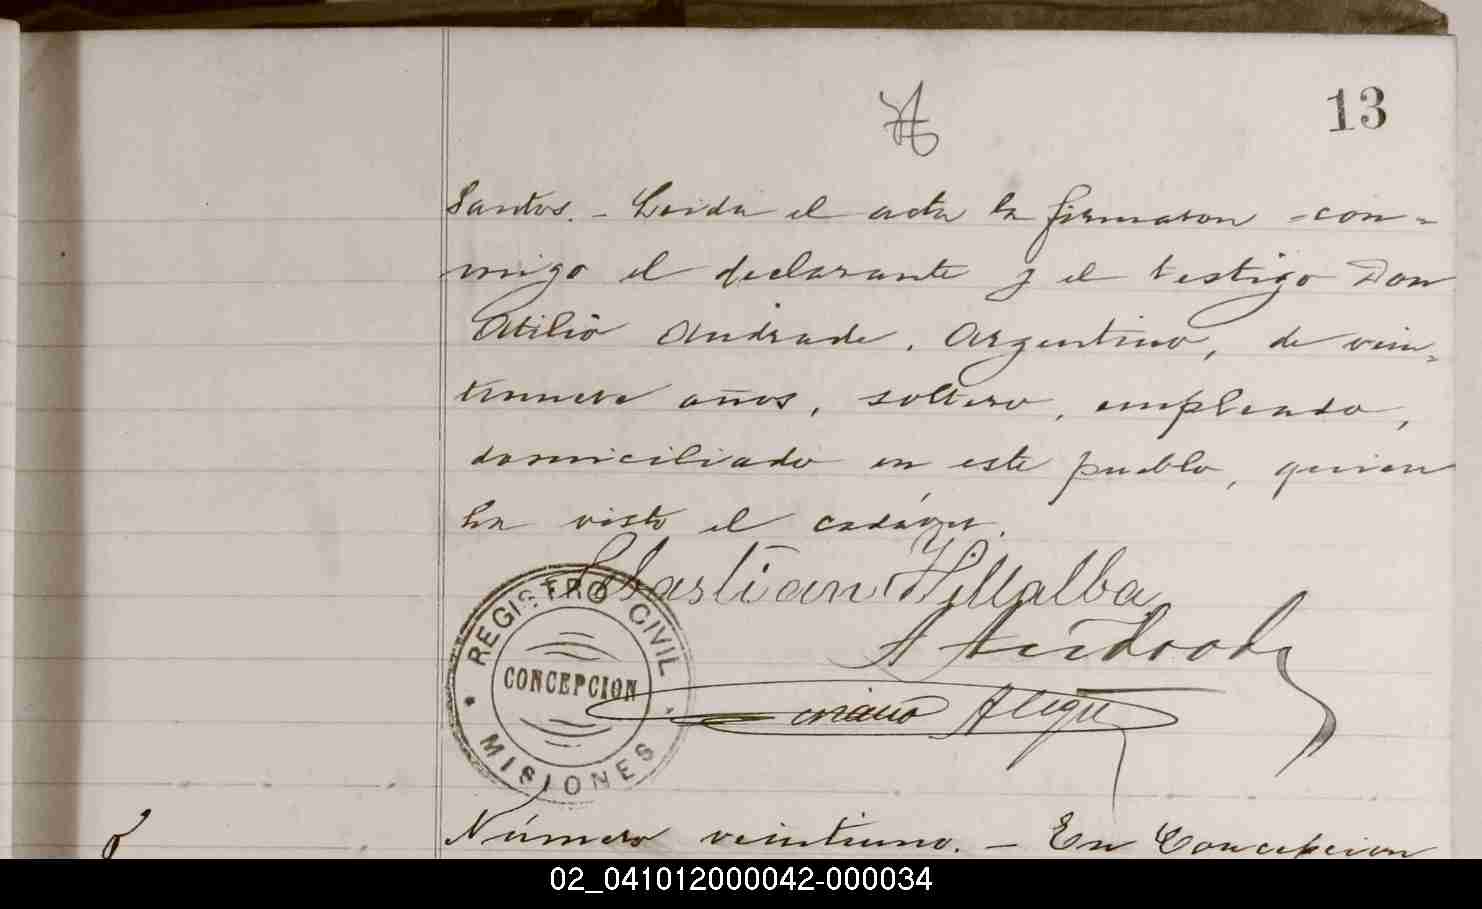 13
Santos. - Leida el acta la firmaron con-
migo el declarante y el testigo Don
Atilio Andrade, Argentino, de vein-
tinueve años, soltero, empleado,
domiciliado en este pueblo, quien
ha visto el cadáver.
Sebastian Villalba
A Andrade
REGISTRO CIVIL
CONCEPCION
MISIONES
Número veintiuno. - En Concepcion
02_041012000042-000034